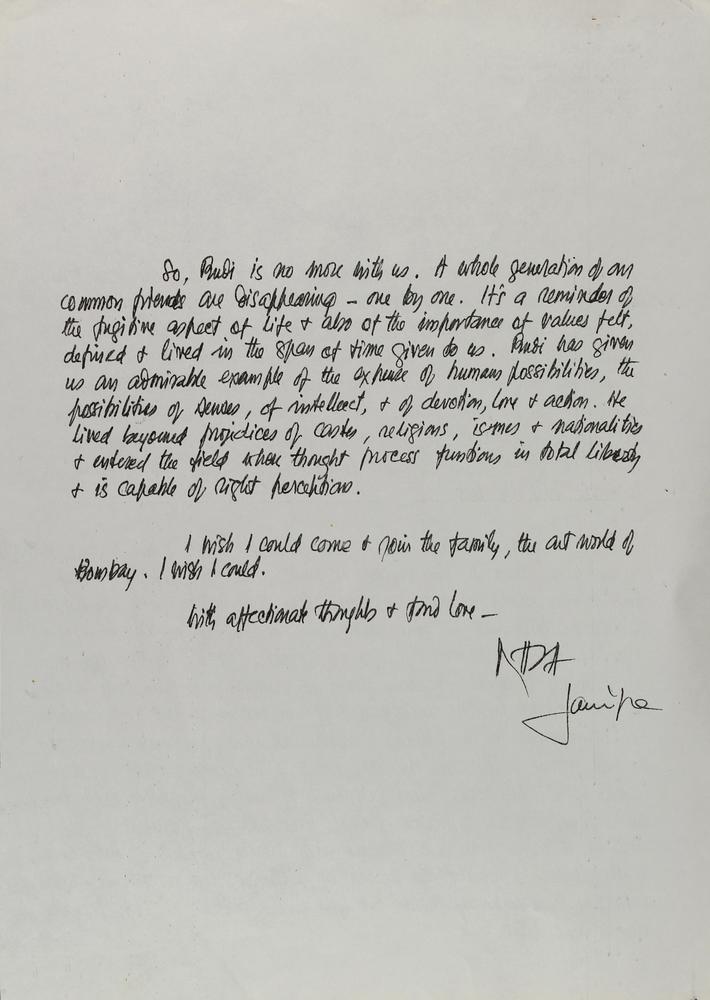 So, Rudi is no more with us. A whole generation of our
common friends are disappearing – one by one. It's a reminder of
the fugitive aspect of life + also of the importance of values felt,
defined + lived in the span of time given to us. Rudi has given
us an admirable example of the expanse of human possibilities, the
possibilities of senses, of intellect, + of devotion, love + action. He
lived beyound prejudices of castes, religions, ismes + nationalities
+ entered the field where thought process functions in total liberty
+ is capable of right perceptions.
I wish I could come + join the family, the art world of
Bombay. I wish I could.
With affectionate thoughts + fond love –